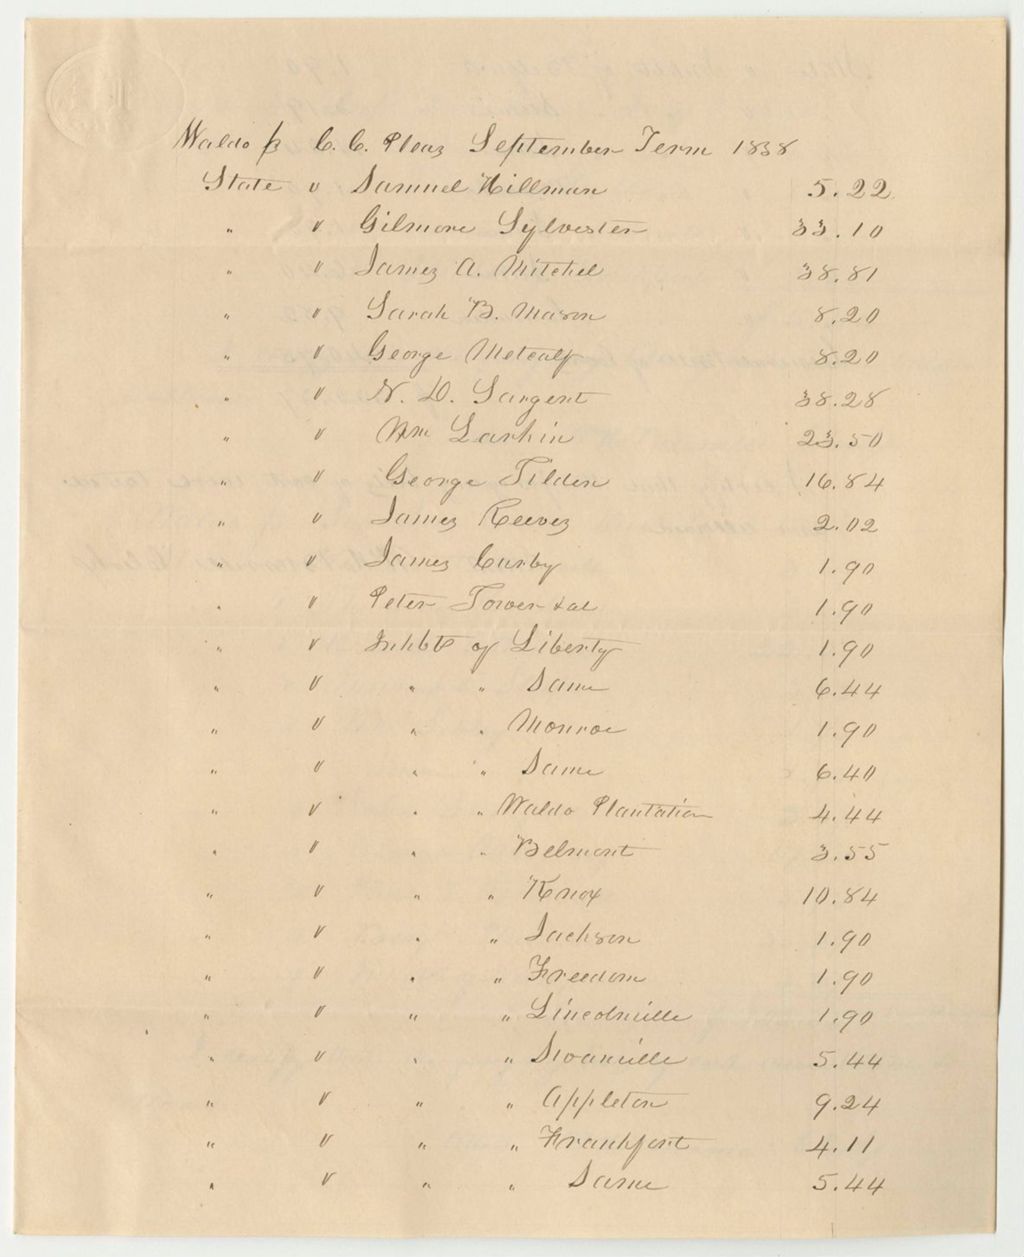 Waldo ß C. C. Pleas September Term 1838
State v Samuel Hillman 5.22
" v Gilmore Sylvester 33.10
" v James A. Mitchel 38.81
" v Sarah B. Mason 8.20
" v George Metcalf 8.20
" v N. D. Sargent 38.28
" v Wm Larkin 23.50
" v George Tilden 16.84
" v James Reeves 2.02
" v James Curby 1.90
" v Peter Tower & al 1.90
" v Inhbts of Liberty 1.90
" v " " Same 6.44
" v " " Monroe 1.90
" v " " Same 6.40
" v " " Waldo Plantation 4.44
" v " " Belmont 3.55
" v " " Knox 10.84
" v " " Jackson 1.90
" v " " Freedom 1.90
" v " " Lincolnville 1.90
" v " " Swanville 5.44
" v " " Appleton 9.24
" v " " Frankfort 4.11
" v " " Same 5.44